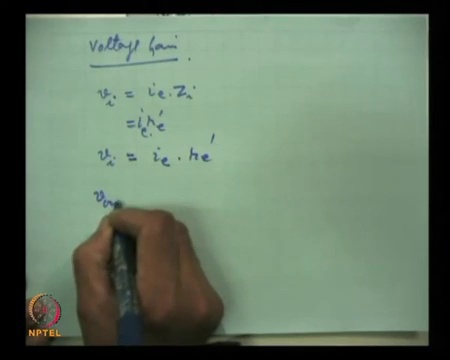 Voltage Gain.
v_i = i_e . Z_i
= i_e r_e'
v_i = i_e . r_e'
NPTEL